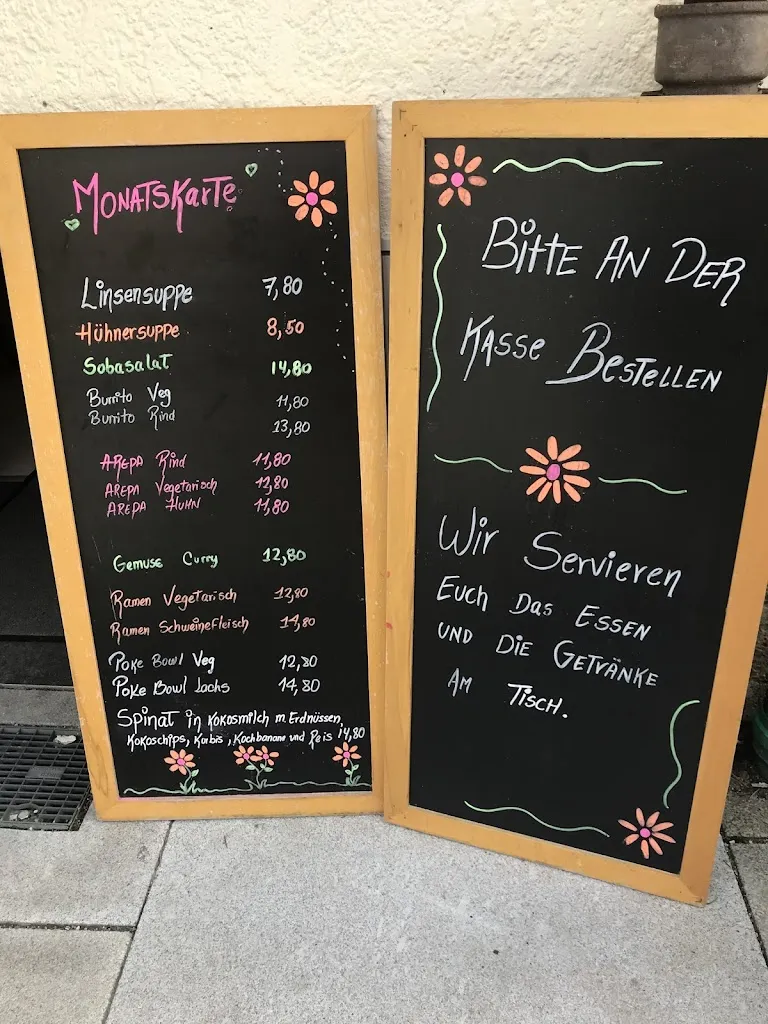 MONATSKARTE
Linsensuppe 7,80
Hühnersuppe 8,50
Sobasalat 14,80
Burrito Veg 11,80
Burrito Rind 13,80
AREPA Rind 11,80
AREPA Vegetarisch 12,80
AREPA HUHN 11,80
Gemuse Curry 12,80
Ramen Vegetarisch 13,80
Ramen Schweinefleisch 14,80
Poke Bowl Veg 12,80
Poke Bowl Lachs 14,80
Spinat in Kokosmilch m. Erdnüssen,
Kokoschips, Kürbis, Kochbanane und Reis 14,80
BITTE AN DER
KASSE BESTELLEN
Wir Servieren
EUCH DAS ESSEN
UND DIE GETRÄNKE
AM TISCH.